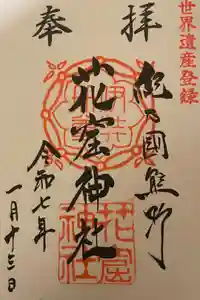 世界遺産登録
奉拝
紀乃國熊野
花窟神社
令和七年
一月十三日
花窟
神社